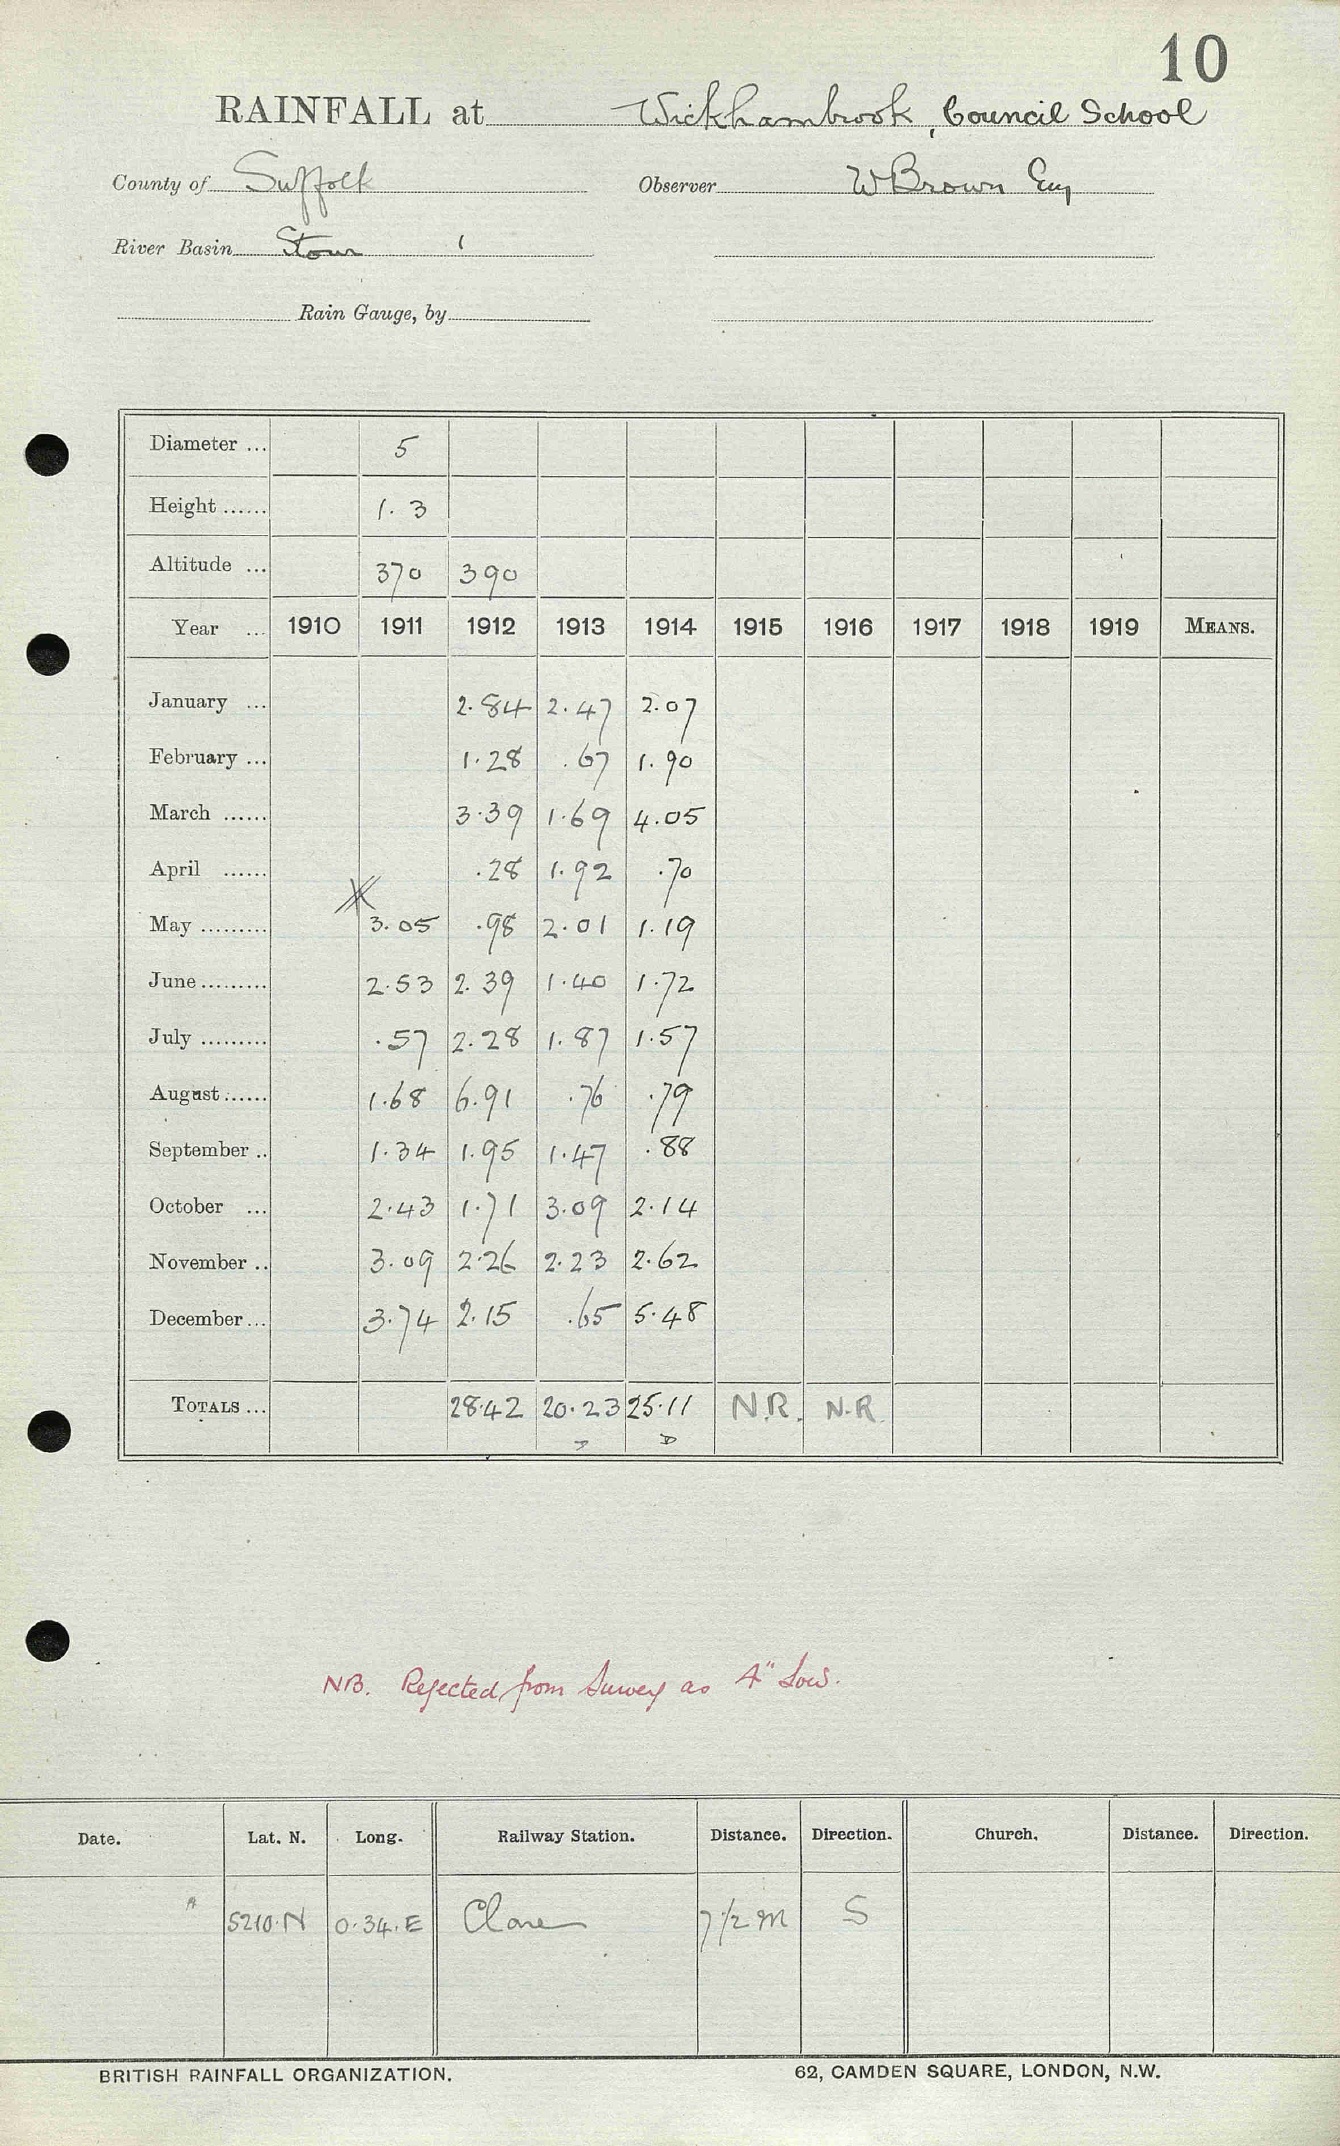 10
RAINFALL at Wickhambrook, Council School
County of Suffolk Observer W Brown Esq
River Basin Stour
Rain Gauge, by
Diameter ... 5
Height ...... 1.3
Altitude ... 370 390
Year ... 1910 1911 1912 1913 1914 1915 1916 1917 1918 1919 MEANS.
January ... 2.84 2.47 2.07
February ... 1.28 .67 1.90
March ...... 3.39 1.69 4.05
April ...... .28 1.92 .70
May ......... 3.05 .98 2.01 1.19
June ......... 2.53 2.39 1.40 1.72
July ......... .57 2.28 1.87 1.57
August ...... 1.68 6.91 .76 .79
September .. 1.34 1.95 1.47 .88
October ... 2.43 1.71 3.09 2.14
November .. 3.09 2.26 2.23 2.62
December ... 3.74 2.15 .65 5.48
TOTALS ... 28.42 20.23 25.11 N.R. N.R.
NB. Rejected from Survey as 4" Low.
Date. Lat. N. Long. Railway Station. Distance. Direction. Church. Distance. Direction.
5210.N 0.34.E Clare 7 1/2 m S
BRITISH RAINFALL ORGANIZATION. 62, CAMDEN SQUARE, LONDON, N.W.